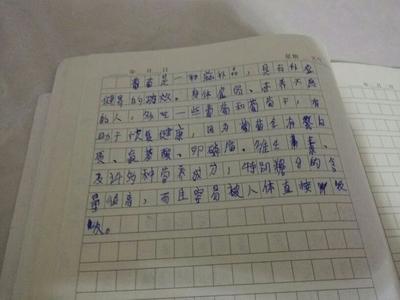 年 月 日 星期
葡萄是一种滋补品，具有补虚
健胃的功效。身体虚弱、营养不良
的人，多吃一些葡萄和葡萄干，有
助于恢复健康，因为葡萄含有蛋白
质、氨基酸、卵磷脂、维生素、
及多种营养成分，特别糖分的含
量很高，而且容易被人体直接吸
收。